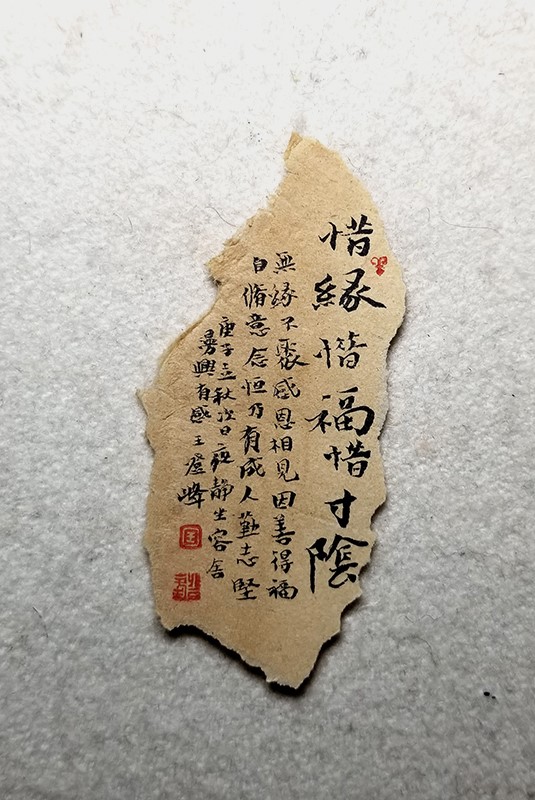 惜緣惜福惜寸陰
無緣不聚感恩相見因善得福
自脩意念恒乃有成人勤志堅
庚子立秋次日夜靜坐容舍
湯興有感王登峰
王